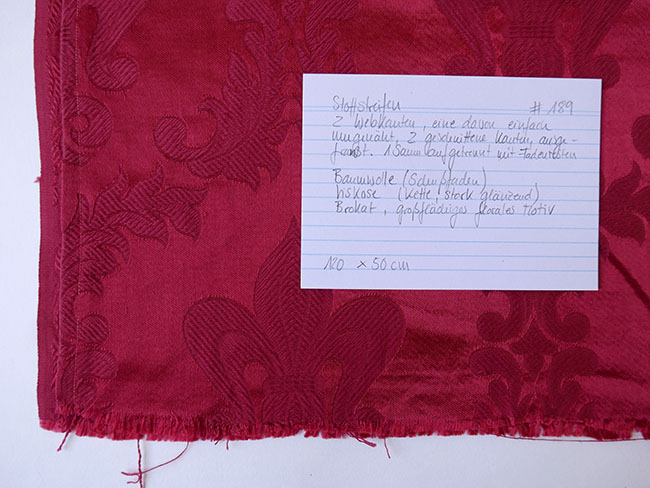 Stoffstreifen # 189
2 Webkanten, eine davon einfach
umgenäht, 2 geschnittene Kanten, ausge-
franst. 1 Saum aufgetrennt mit Fadenresten
Baumwolle (Schußfaden)
Viskose (Kette, stark glänzend)
Brokat, großflächiges florales Motiv
120 x 50 cm